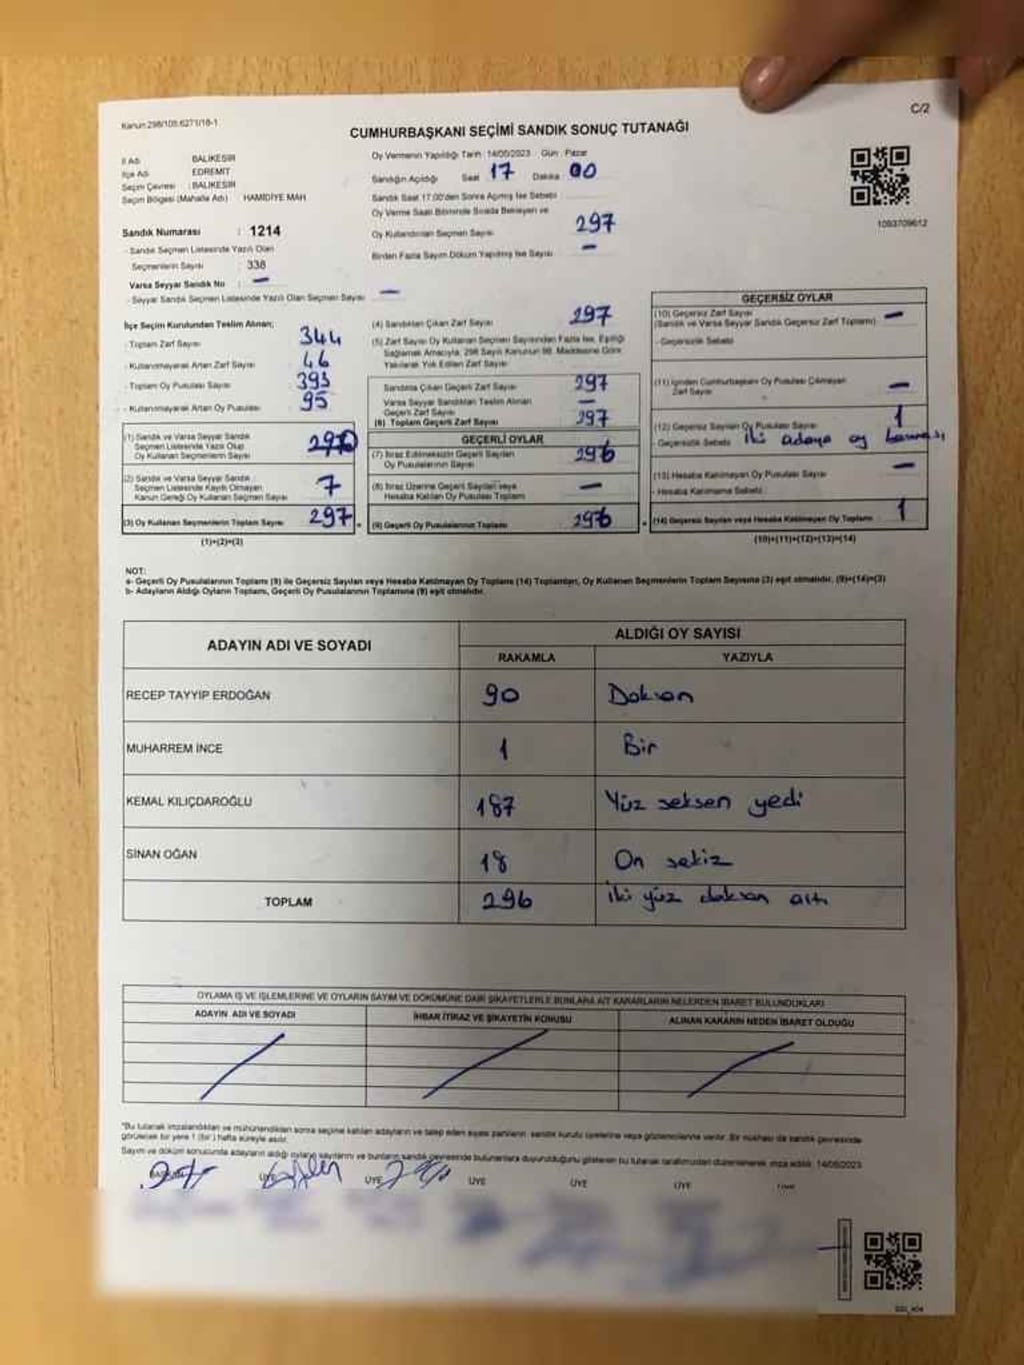 C/2
Kanun:298/105:6271/18-1
CUMHURBAŞKANI SEÇİMİ SANDIK SONUÇ TUTANAĞI
İl Adı BALIKESİR
İlçe Adı EDREMİT
Seçim Çevresi : BALIKESİR
Seçim Bölgesi (Mahalle Adı) HAMİDİYE MAH
Sandık Numarası : 1214
- Sandık Seçmen Listesinde Yazılı Olan
Seçmenlerin Sayısı : 338
Varsa Seyyar Sandık No : —
- Seyyar Sandık Seçmen Listesinde Yazılı Olan Seçmen Sayısı —
Oy Vermenin Yapıldığı Tarih :14/05/2023 Gün : Pazar
Sandığın Açıldığı Saat 17 Dakika 00
Sandık Saat 17:00'den Sonra Açılmış İse Sebebi
Oy Verme Saati Bitiminde Sırada Bekleyen ve
Oy Kullandırılan Seçmen Sayısı 297
Birden Fazla Sayım Döküm Yapılmış İse Sayısı —
1093709612
İlçe Seçim Kurulundan Teslim Alınan;
- Toplam Zarf Sayısı 344
- Kullanılmayarak Artan Zarf Sayısı 46
- Toplam Oy Pusulası Sayısı 393
- Kullanılmayarak Artan Oy Pusulası 95
(1) Sandık ve Varsa Seyyar Sandık
Seçmen Listesinde Yazılı Olup
Oy Kullanan Seçmenlerin Sayısı 290
(2) Sandık ve Varsa Seyyar Sandık
Seçmen Listesinde Kayıtlı Olmayan
Kanun Gereği Oy Kullanan Seçmen Sayısı 7
(3) Oy Kullanan Seçmenlerin Toplam Sayısı 297
(1)+(2)=(3)
(4) Sandıktan Çıkan Zarf Sayısı 297
(5) Zarf Sayısı Oy Kullanan Seçmen Sayısından Fazla İse, Eşitliği
Sağlamak Amacıyla, 298 Sayılı Kanunun 98. Maddesine Göre
Yakılarak Yok Edilen Zarf Sayısı
Sandıkta Çıkan Geçerli Zarf Sayısı 297
Varsa Seyyar Sandıktan Teslim Alınan
Geçerli Zarf Sayısı —
(6) Toplam Geçerli Zarf Sayısı 297
GEÇERLİ OYLAR
(7) İtiraz Edilmeksizin Geçerli Sayılan
Oy Pusulalarının Sayısı 296
(8) İtiraz Üzerine Geçerli Sayılan veya
Hesaba Katılan Oy Pusulası Toplamı —
(9) Geçerli Oy Pusulalarının Toplamı 296
GEÇERSİZ OYLAR
(10) Geçersiz Zarf Sayısı —
(Sandık ve Varsa Seyyar Sandık Geçersiz Zarf Toplamı)
- Geçersizlik Sebebi
(11) İçinden Cumhurbaşkanı Oy Pusulası Çıkmayan
Zarf Sayısı —
(12) Geçersiz Sayılan Oy Pusulası Sayısı 1
- Geçersizlik Sebebi iki adaya oy basması
(13) Hesaba Katılmayan Oy Pusulası Sayısı —
- Hesaba Katılmama Sebebi :
(14) Geçersiz Sayılan veya Hesaba Katılmayan Oy Toplamı 1
(10)+(11)+(12)+(13)=(14)
NOT:
a- Geçerli Oy Pusulalarının Toplamı (9) ile Geçersiz Sayılan veya Hesaba Katılmayan Oy Toplamı (14) Toplamları, Oy Kullanan Seçmenlerin Toplam Sayısına (3) eşit olmalıdır. (9)+(14)=(3)
b- Adayların Aldığı Oyların Toplamı, Geçerli Oy Pusulalarının Toplamına (9) eşit olmalıdır.
ADAYIN ADI VE SOYADI ALDIĞI OY SAYISI
RAKAMLA YAZIYLA
RECEP TAYYİP ERDOĞAN 90 Doksan
MUHARREM İNCE 1 Bir
KEMAL KILIÇDAROĞLU 187 Yüz seksen yedi
SİNAN OĞAN 18 On sekiz
TOPLAM 296 İki yüz doksan altı
OYLAMA İŞ VE İŞLEMLERİNE VE OYLARIN SAYIM VE DÖKÜMÜNE DAİR ŞİKAYETLERLE BUNLARA AİT KARARLARIN NELERDEN İBARET BULUNDUKLARI
ADAYIN ADI VE SOYADI İHBAR İTİRAZ VE ŞİKAYETİN KONUSU ALINAN KARARIN NEDEN İBARET OLDUĞU
"Bu tutanak imzalandıktan ve mühürlendikten sonra seçime katılan adayların ve talep eden siyasi partilerin, sandık kurulu üyelerine veya gözlemcilerine verilir. Bir nüshası da sandık çevresinde
görülecek bir yere 1 (bir) hafta süreyle asılır.
Sayım ve döküm sonucunda adayların aldığı oyların sayılarını ve bunların sandık çevresinde bulunanlara duyurulduğunu gösteren bu tutanak tarafımızdan düzenlenerek imza edildi. 14/05/2023
BAŞKAN ÜYE ÜYE ÜYE ÜYE ÜYE